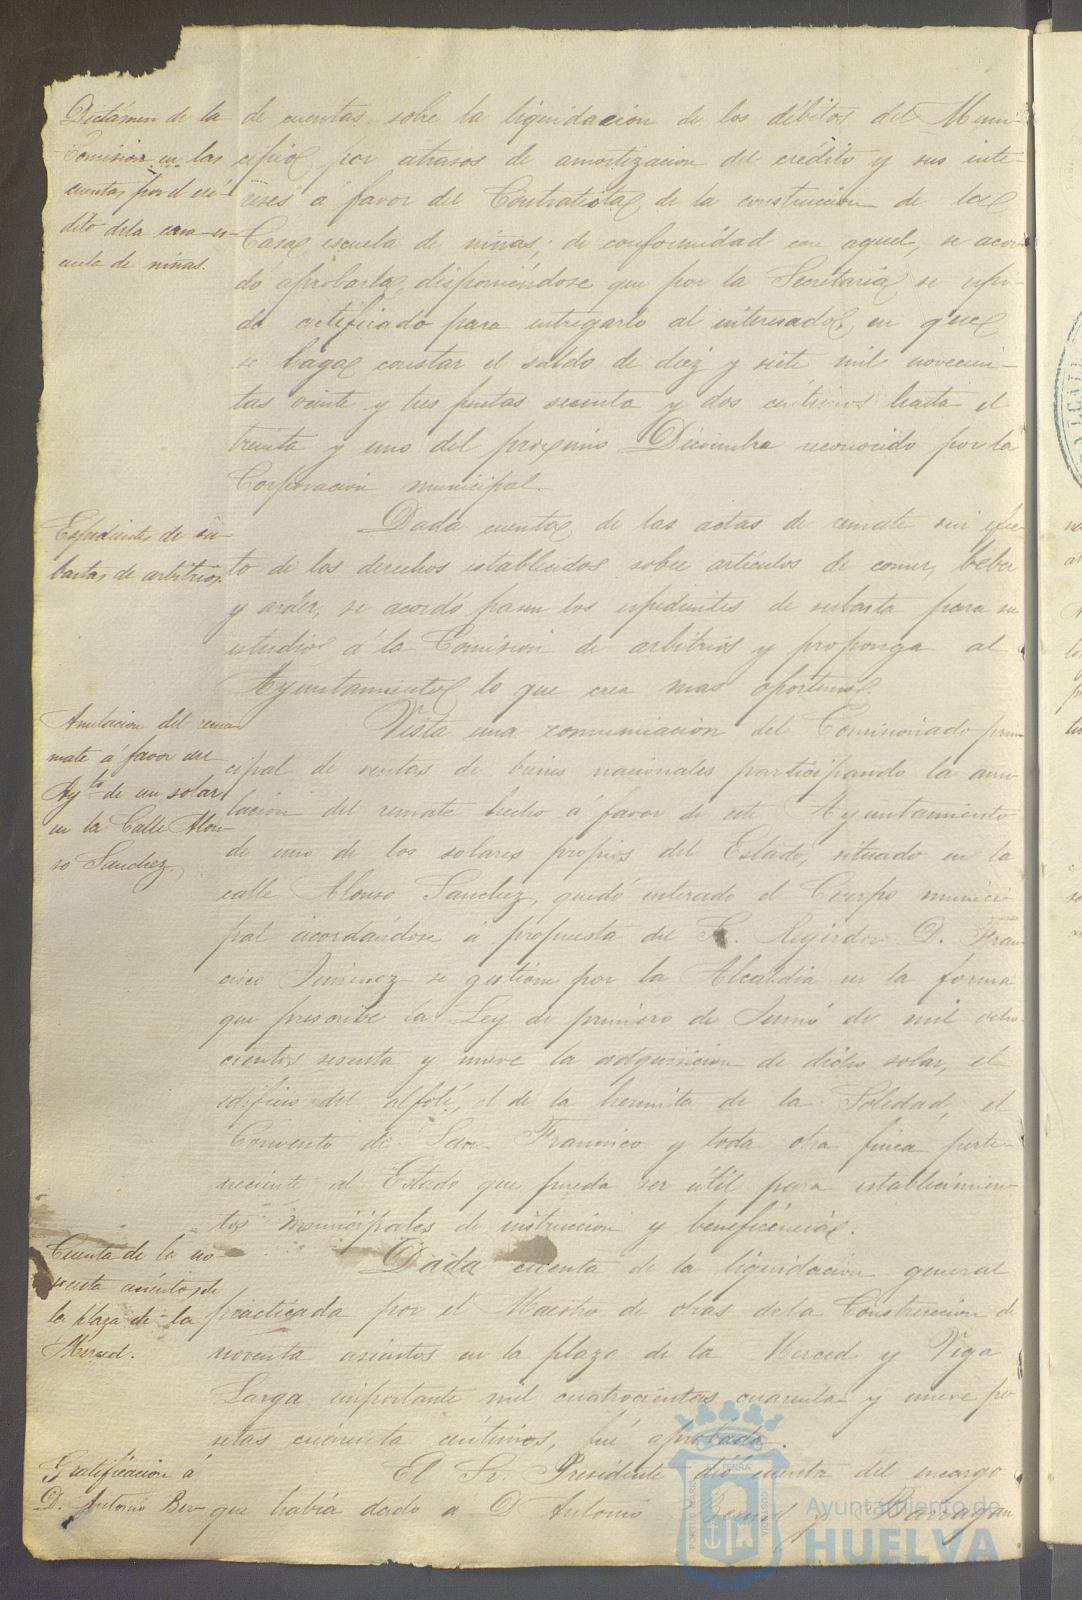 Dictámen de la
Comision en las
cuentas por el cré-
dito de la casa es-
cuela de niñas.
de cuentas sobre la liquidacion de los débitos del Muni-
cipio por atrasos de amortizacion del crédito y sus inte-
reses á favor del Contratista de la construccion de la
Casa escuela de niñas; de conformidad con aquel, se acor-
dó aprobarla, disponiéndose que por la Secretaría se espi-
da certificado para entregarlo al interesado, en que
se haga constar el saldo de diez y siete mil novecien-
tas veinte y tres pesetas sesenta y dos centimos hasta el
treinta y uno del proximo Diciembre reconocido por la
Corporacion municipal.
Espedientes de su-
bastas de arbitrios.
Dada cuenta de las actas de remate sin efec-
to de los derechos establecidos sobre artículos de comer, beber
y arder, se acordó pasen los espedientes de subasta para su
estudio á la Comision de arbitrios y proponga al
Ayuntamiento lo que crea mas oportuno.
Anulacion del rema-
mate á favor del
Aytº de un solar
en la Calle Alon-
so Sanchez.
Vista una comunicacion del Comisionado prin-
cipal de ventas de bienes nacionales participando la anu-
lacion del remate hecho á favor de este Ayuntamiento
de uno de los solares propios del Estado, situado en la
calle Alonso Sanchez, quedó enterado el Cuerpo munici-
pal acordándose á propuesta del Sr. Regidor D. Fran-
cisco Jimenez se gestione por la Alcaldia en la forma
que prescribe la Ley de primero de Junio de mil ocho-
cientos sesenta y nueve la adquisicion de dicho solar, el
edificio del alfolí, el de la hermita de la Soledad, el
Convento de San Francisco y toda otra finca perte-
neciente al Estado que pueda ser útil para establecimien-
tos municipales de instruccion y beneficencia.
Cuenta de la no-
venta asientos de
la plaza de la
Merced.
Dada cuenta de la liquidacion general
practicada por el Maestro de obras de la Construccion de
noventa asientos en la plaza de la Merced y Vega
Larga importante mil cuatrocientas cuarenta y nueve pe-
setas cuarenta céntimos, fué aprobada.
Gratificacion á
D. Antonio Ber-
El Sr. Presidente dió cuenta del encargo
que habia dado a D Antonio Bernal y Barragan
PORTUS MARIS
TERRÆ CUSTODIA
Ayuntamiento de
HUELVA